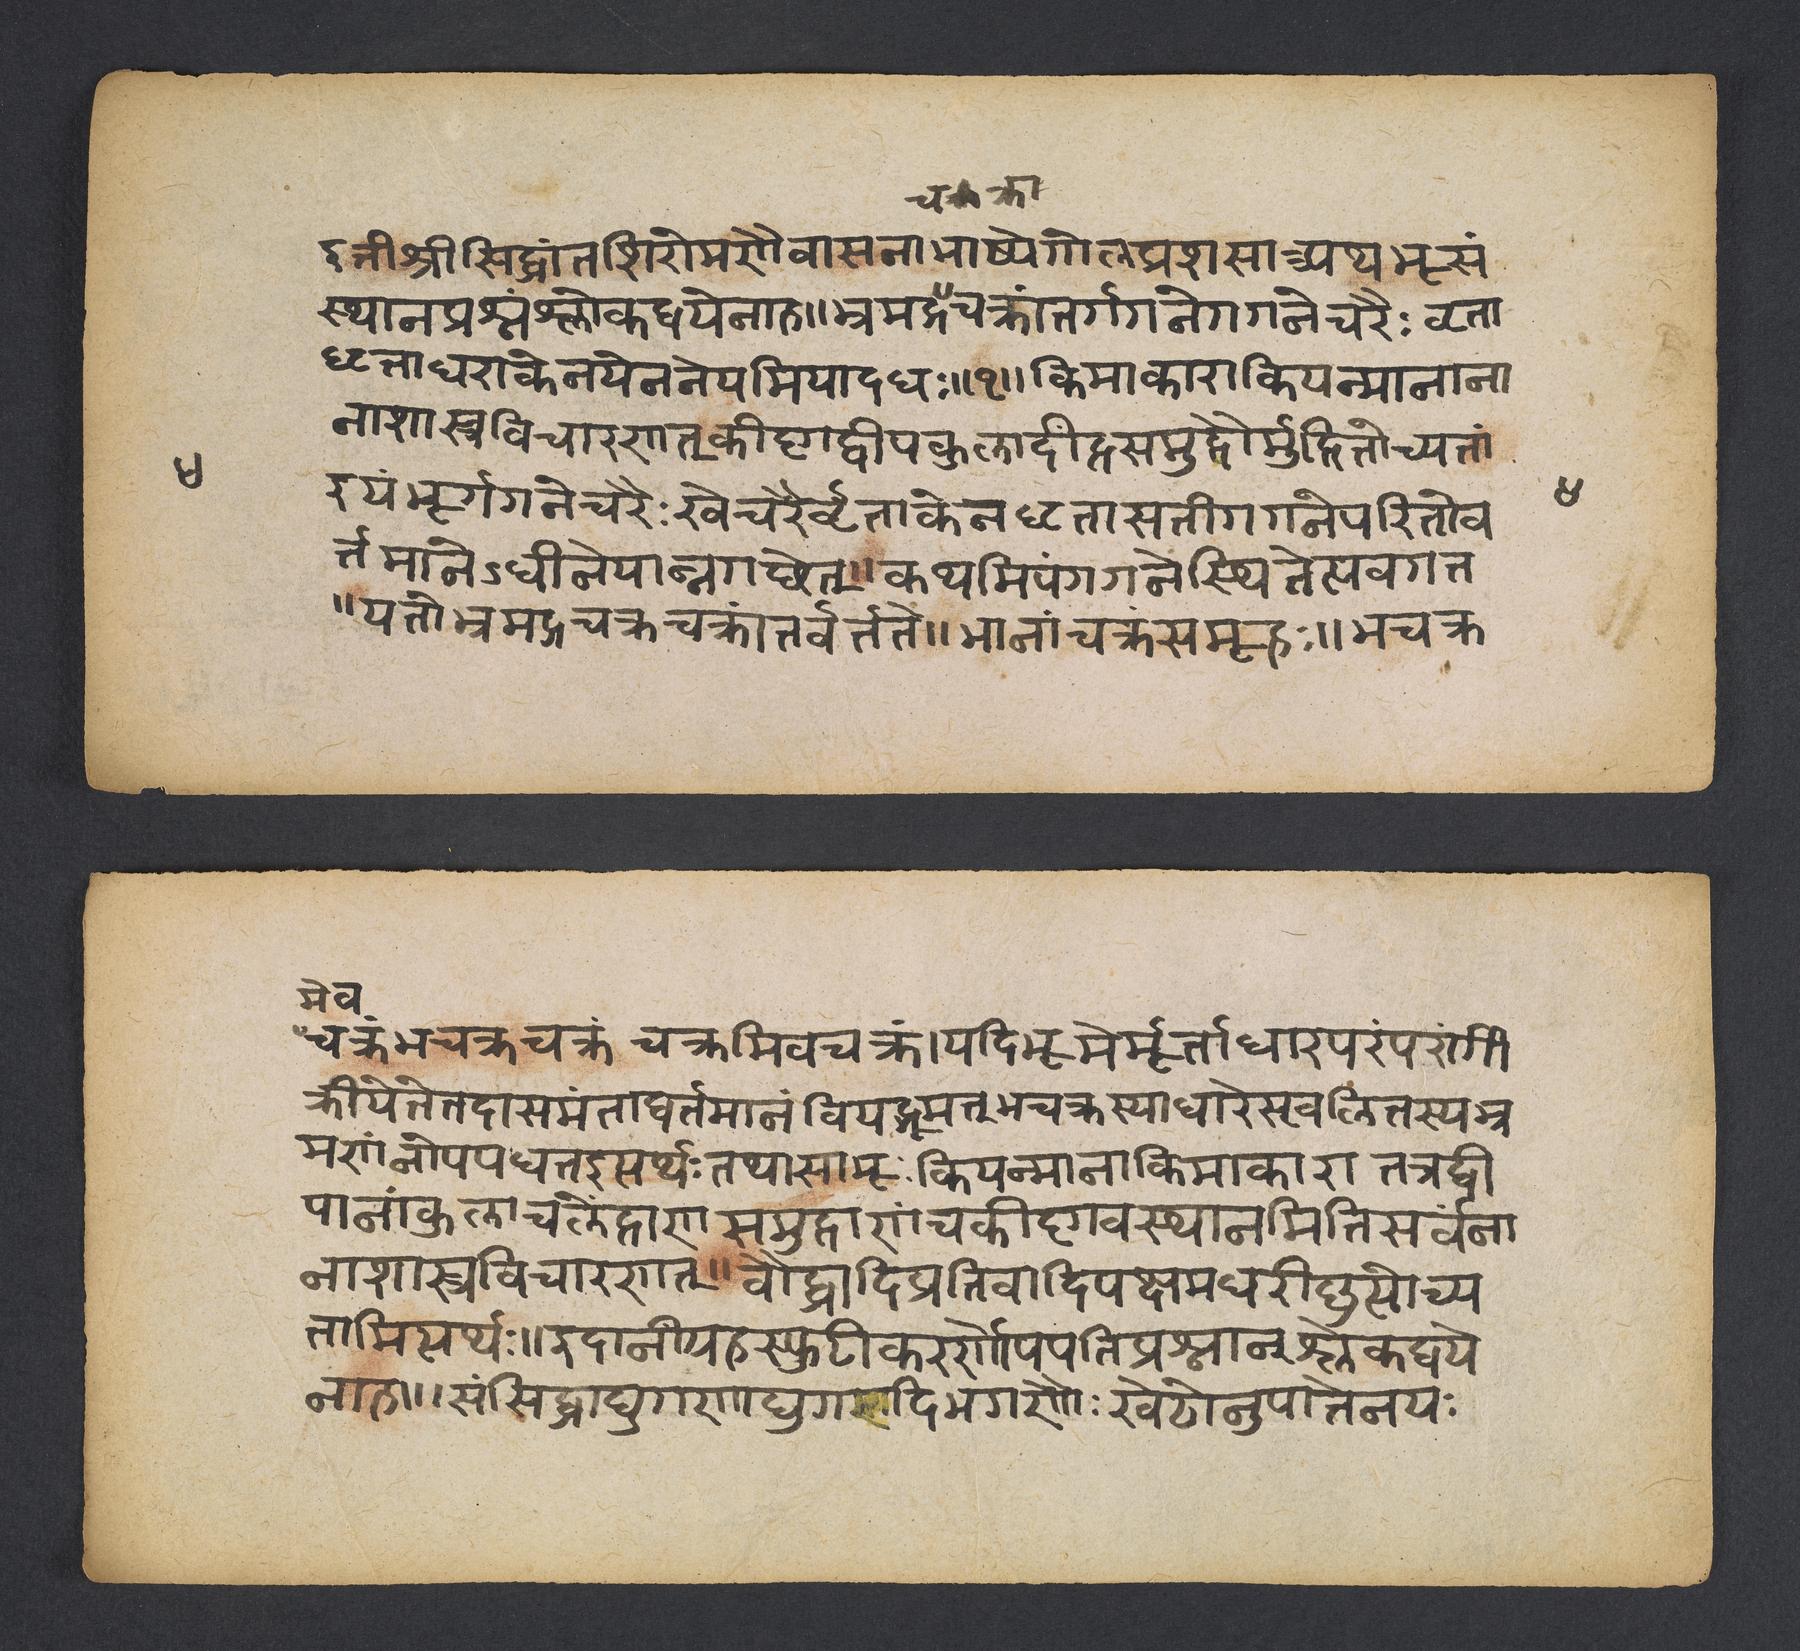 चक्रक्रा
इतीश्रीसिद्धांतशिरोमणौवासनाभाष्येगोलप्रशसाऽथभूसं
स्थानप्रश्नंश्लोकद्वयेनाह॥भ्रमद्भचक्रांतर्गगनेगगनेचरैःवृता
धृताधराकेनयेननेयमियादधः॥१॥किमाकाराकियन्मानाना
नाशास्त्रविचारणात्कीदृग्द्वीपकुलाद्रींद्रसमुद्रैर्मुद्रितोच्यतां
४
इयंभूर्गगनेचरैःखेचरैर्वृताकेनधृतासतीगगनेपरितोव
४
र्त्तमानेऽधीनेयान्नगछेत्॥कथमियंगगनेस्थितेत्यवगत
॥यतोभ्रमद्भचक्रचक्रांतर्वर्त्तते॥भानांचक्रंसमूहः॥भचक्र
मेव
चक्रंभचक्रचक्रं चक्रमिवचक्रं।यदिभूमेर्मूर्त्ताधारपरंपरांगी
क्रीयेतेतदासमंताद्वर्तमानंवियद्भूमत्भचक्रस्याधारेसवलितस्यभ्र
मणंनोपपद्यतइत्यर्थःतथासाभूःकियन्मानाकिमाकारा तत्रद्वी
पानांकुलाचलेंद्राणासमुद्राणांचकीदृगवस्थानमितिसर्वंना
नाशास्त्रविचारणात्॥बौद्धादिप्रतिवादिपक्षमधरीकृत्योच्य
तामित्यर्थः॥इदानींग्रहस्फुटीकरणोपपतिप्रश्नान्श्लोकद्वये
नाह॥संसिद्धाद्युगणाद्युगादिभगणैःखेटोनुपातेनयः